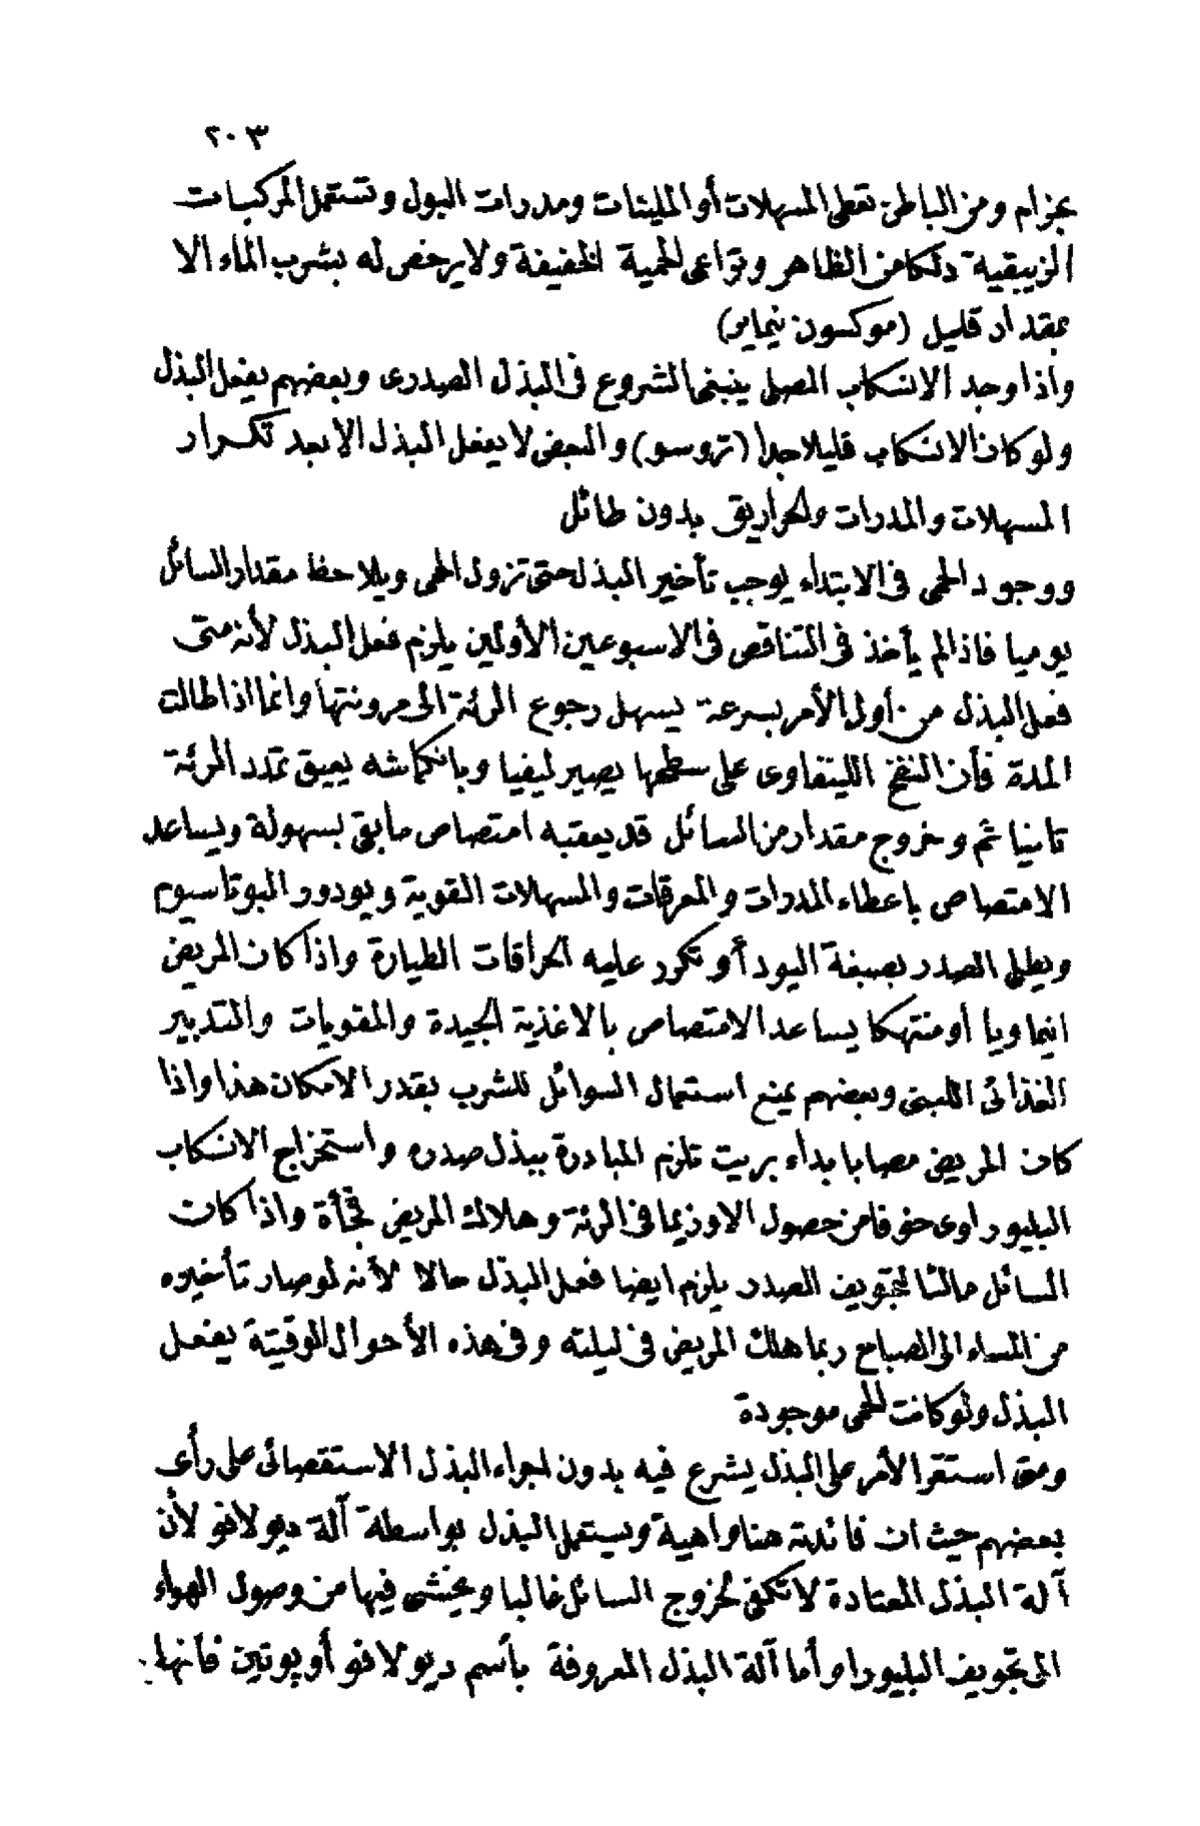 ٢٠٣
بحزام ومن الباطن تعطى المسهلات أو الملينات ومدرات البول وتستعمل المركبات
الزيبقية دلكا من الظاهر وتراعى الحمية الخفيفة ولا يرخص له بشرب الماء الا
بمقدار قليل (موكسون نيماير)
واذا وجد الانسكاب المصلى ينبغى الشروع فى البذل الصدرى وبعضهم يفعل البذل
ولو كان الانسكاب قليلا جدا (تروسو) والبعض لا يفعل البذل الا بعد تكرار
المسهلات والمدرات والحراريق بدون طائل
ووجود الحمى فى الابتداء يوجب تأخير البذل حتى تزول الحمى ويلاحظ مقدار السائل
يوميا فاذا لم يأخذ فى التناقص فى الاسبوعين الأولين يلزم فعل البذل لأنه متى
فعل البذل من أول الأمر بسرعة يسهل رجوع الرئة الى مرونتها وانما اذا طالت
المدة فأن النضح اللينفاوى على سطحها يصير ليفيا وبانكماشه يعيق تمدد الرئة
ثانيا ثم وخروج مقدار من السائل قد يعقبه امتصاص ما بقى بسهولة ويساعد
الامتصاص باعطاء المدرات والمعرقات والمسهلات القوية ويودور البوتاسيوم
ويطلى الصدر بصبغة اليود أو تكرر عليه الحراقات الطيارة واذا كان المريض
انيماويا أو منتهكا يساعد الامتصاص بالاغذية الجيدة والمقويات والتدبير
الغذائى اللبنى وبعضهم يمنع استعمال السوائل للشرب بقدر الامكان هذا واذا
كان المريض مصابا بداء بريت تلزم المبادرة ببذل صدره واستخراج الانسكاب
البليوراوى خوفا من حصول الاوزيما فى الرئة وهلاك المريض فجأة واذا كان
السائل مالئا لتجويف الصدر يلزم ايضا فعل البذل حالا لأنه لو صار تأخيره
من المساء الى الصباح ربما هلك المريض فى ليلته وفى هذه الأحوال الوقتية يفعل
البذل ولو كانت الحمى موجودة
ومتى استقر الأمر على البذل يشرع فيه بدون اجراء البذل الاستقصائى على رأى
بعضهم حيث ان فائدته هنا واهية ويستعمل البذل بواسطة آلة ديولافو لأن
آلة البذل المعتادة لا تكفى لخروج السائل غالبا ويخشى فيها من وصول الهواء
الى تجويف البليورا وأما آلة البذل المعروفة بأسم ديولافو أو بوتين فأنها